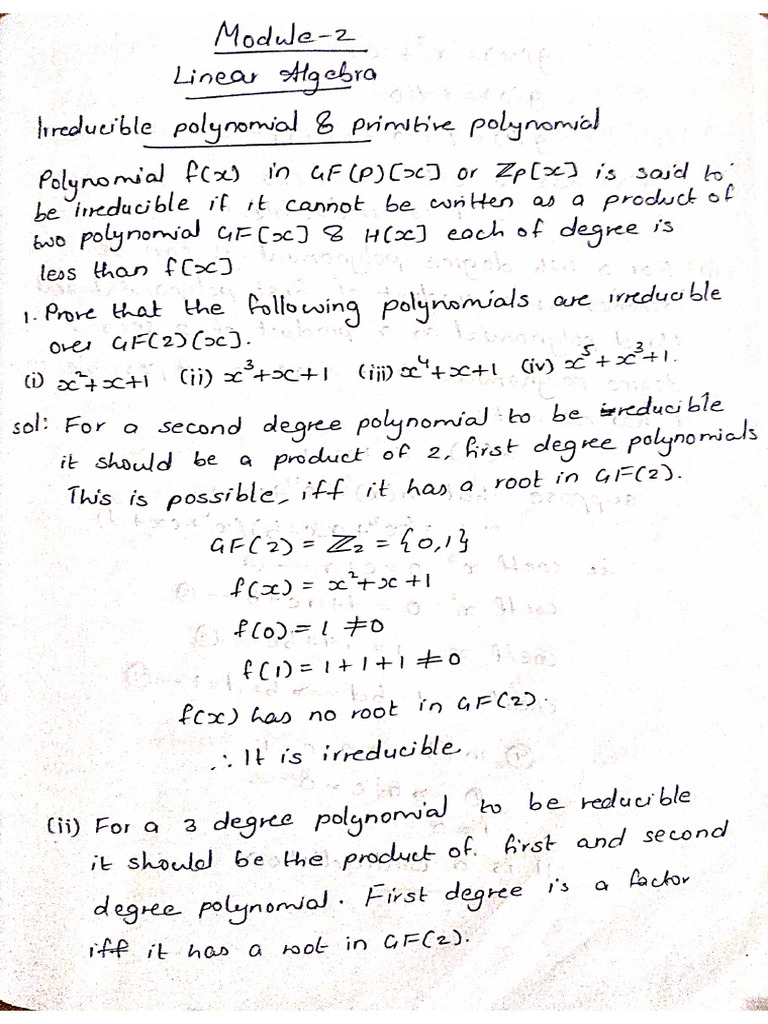 Module-2
Linear Algebra
Irreducible polynomial & primitive polynomial
Polynomial f(x) in GF(P)[x] or Zp[x] is said to
be irreducible if it cannot be written as a product of
two polynomial GF[x] & H[x] each of degree is
less than f[x]
1. Prove that the following polynomials are irreducible
over GF(2)[x].
(i) x²+x+1 (ii) x³+x+1 (iii) x⁴+x+1 (iv) x⁵+x³+1.
sol: For a second degree polynomial to be reducible
it should be a product of 2, first degree polynomials
This is possible, iff it has a root in GF(2).
GF(2) = ℤ₂ = {0,1}
f(x) = x²+x+1
f(0) = 1 ≠0
f(1) = 1+1+1 ≠0
f(x) has no root in GF(2).
∴ It is irreducible
(ii) For a 3 degree polynomial to be reducible
it should be the product of. first and second
degree polynomial. First degree is a factor
iff it has a root in GF(2).